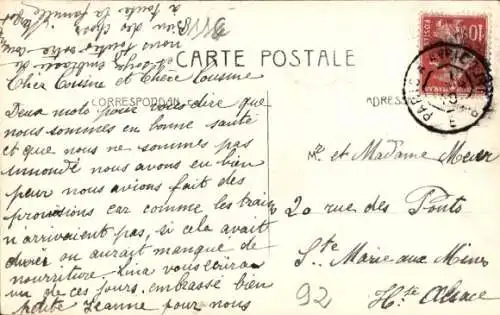 CARTE POSTALE
CORRESPONDANCE
ADRESSE
Cher Cousine et Chère Cousine
Deux mots pour vous dire que
nous sommes en bonne santé
et que nous ne sommes pas
inondé nous avons eu bien
peur nous avions fait des
provisions car comme les trains
n'arrivaient pas, si cela avait
durer on aurait manqué de
nourriture. Lina vous écrira
un de ces jours. embrassé bien
petite Jeanne pour nous
et
nous toutes votre
bien des choses
à toute la famille
Mr. et Madame Meier
20 rue des Ponts
Ste Marie aux Mines
Hte Alsace
92
10
POSTES
PARIS